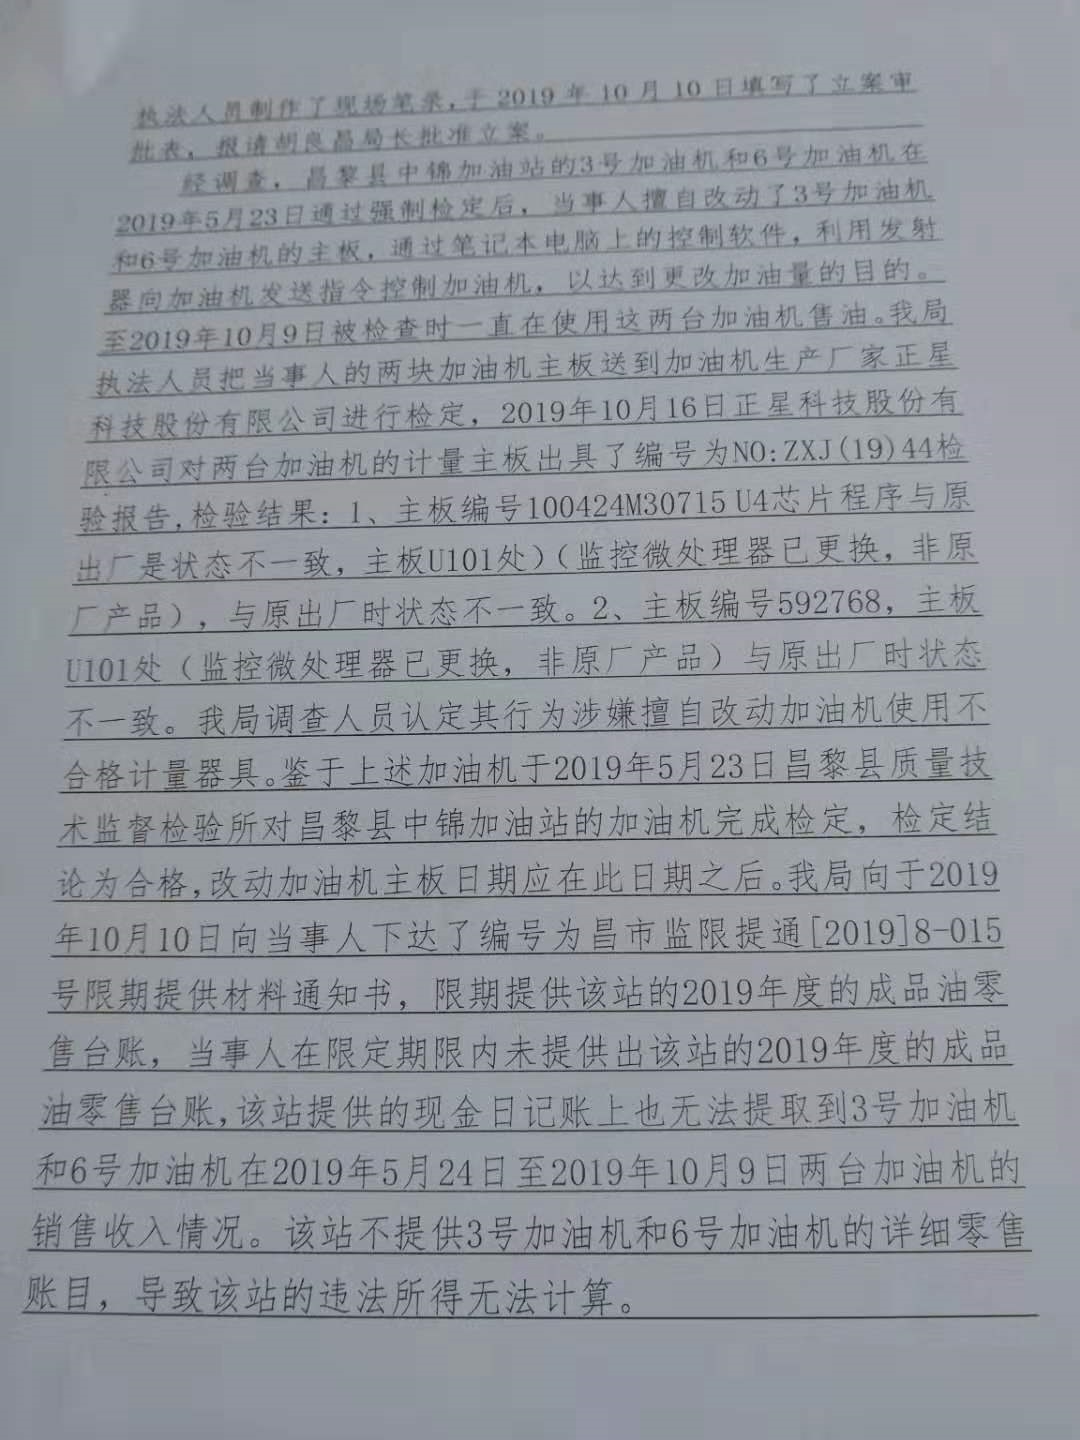 执法人员制作了现场笔录，于 2019 年 10 月 10 日填写了立案审
批表，报请胡良昌局长批准立案。
经调查，昌黎县中锦加油站的3号加油机和6号加油机在
2019年5月23日通过强制检定后，当事人擅自改动了3号加油机
和6号加油机的主板，通过笔记本电脑上的控制软件，利用发射
器向加油机发送指令控制加油机，以达到更改加油量的目的。
至2019年10月9日被检查时一直在使用这两台加油机售油。我局
执法人员把当事人的两块加油机主板送到加油机生产厂家正星
科技股份有限公司进行检定，2019年10月16日正星科技股份有
限公司对两台加油机的计量主板出具了编号为NO:ZXJ(19)44检
验报告,检验结果：1、主板编号100424M30715 U4芯片程序与原
出厂是状态不一致，主板U101处）（监控微处理器已更换，非原
厂产品），与原出厂时状态不一致。2、主板编号592768，主板
U101处（监控微处理器已更换，非原厂产品）与原出厂时状态
不一致。我局调查人员认定其行为涉嫌擅自改动加油机使用不
合格计量器具。鉴于上述加油机于2019年5月23日昌黎县质量技
术监督检验所对昌黎县中锦加油站的加油机完成检定，检定结
论为合格,改动加油机主板日期应在此日期之后。我局向于2019
年10月10日向当事人下达了编号为昌市监限提通[2019]8-015
号限期提供材料通知书，限期提供该站的2019年度的成品油零
售台账，当事人在限定期限内未提供出该站的2019年度的成品
油零售台账,该站提供的现金日记账上也无法提取到3号加油机
和6号加油机在2019年5月24日至2019年10月9日两台加油机的
销售收入情况。该站不提供3号加油机和6号加油机的详细零售
账目，导致该站的违法所得无法计算。